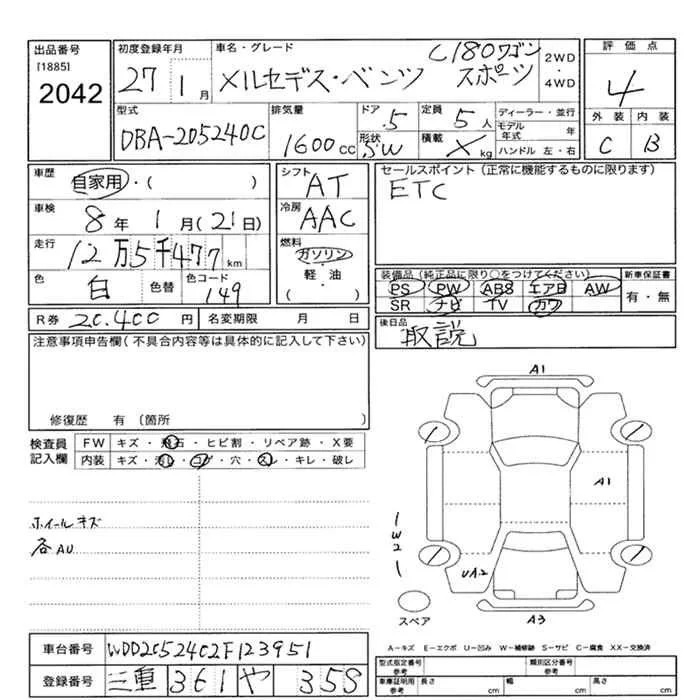 出品番号
[1885]
2042
初度登録年月
27 1月
車名・グレード
メルセデス・ベンツ C180ワゴン スポーツ
2WD・4WD
評価点
4
外装 内装
C B
型式
DBA-205240C
排気量
1600cc
ドア 5
形状 SW
定員 5人
積載 X kg
ディーラー・並行
モデル年式 年
ハンドル 左・右
車歴
自家用・( )
車検
8年 1月(21日)
走行
12万5千477km
色
白 色替
色コード
149
シフト
AT
冷房
AAC
燃料
ガソリン
軽・油
( )
セールスポイント (正常に機能するものに限ります)
ETC
装備品(純正品に限り○をつけてください)
PS PW ABS エアB AW
SR ナビ TV カワ
新車保証書
有・無
R券 20.400円 名変期限 月 日
後日品
取説
注意事項申告欄(不具合内容等は具体的に記入して下さい)
修復歴 有 〔箇所 〕
検査員記入欄
FW キズ・飛石・ヒビ割・リペア跡・X要
内装 キズ・汚レ・コゲ・穴・スレ・キレ・破レ
ホイールキズ
各AU
A1
A1
W2
UA2
A3
スペア
A-キズ E-エクボ U-凹み W-補修跡 S-サビ C-腐食 XX-交換済
車台番号 WDD2052402F123951
登録番号 三重 361 や 358
型式指定番号 参考 類別区分番号
車庫証明用 参考 長さ cm 幅 cm 高さ cm